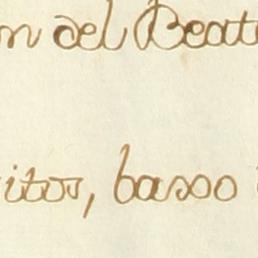 n del Beato
itor, basso